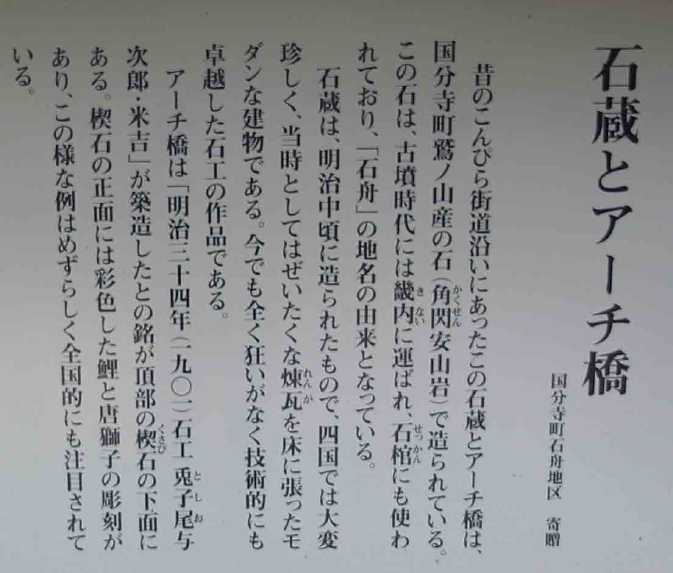 石蔵とアーチ橋
国分寺町石舟地区　寄贈
昔のこんぴら街道沿いにあったこの石蔵とアーチ橋は、
国分寺町鷲ノ山産の石(角閃安山岩)で造られている。
この石は、古墳時代には畿内に運ばれ、石棺にも使わ
れており、「石舟」の地名の由来となっている。
石蔵は、明治中頃に造られたもので、四国では大変
珍しく、当時としてはぜいたくな煉瓦を床に張ったモ
ダンな建物である。今でも全く狂いがなく技術的にも
卓越した石工の作品である。
アーチ橋は「明治三十四年(一九〇一)石工 兎子尾与
次郎・米吉」が築造したとの銘が頂部の楔石の下面に
ある。楔石の正面には彩色した鯉と唐獅子の彫刻が
あり、この様な例はめずらしく全国的にも注目されて
いる。